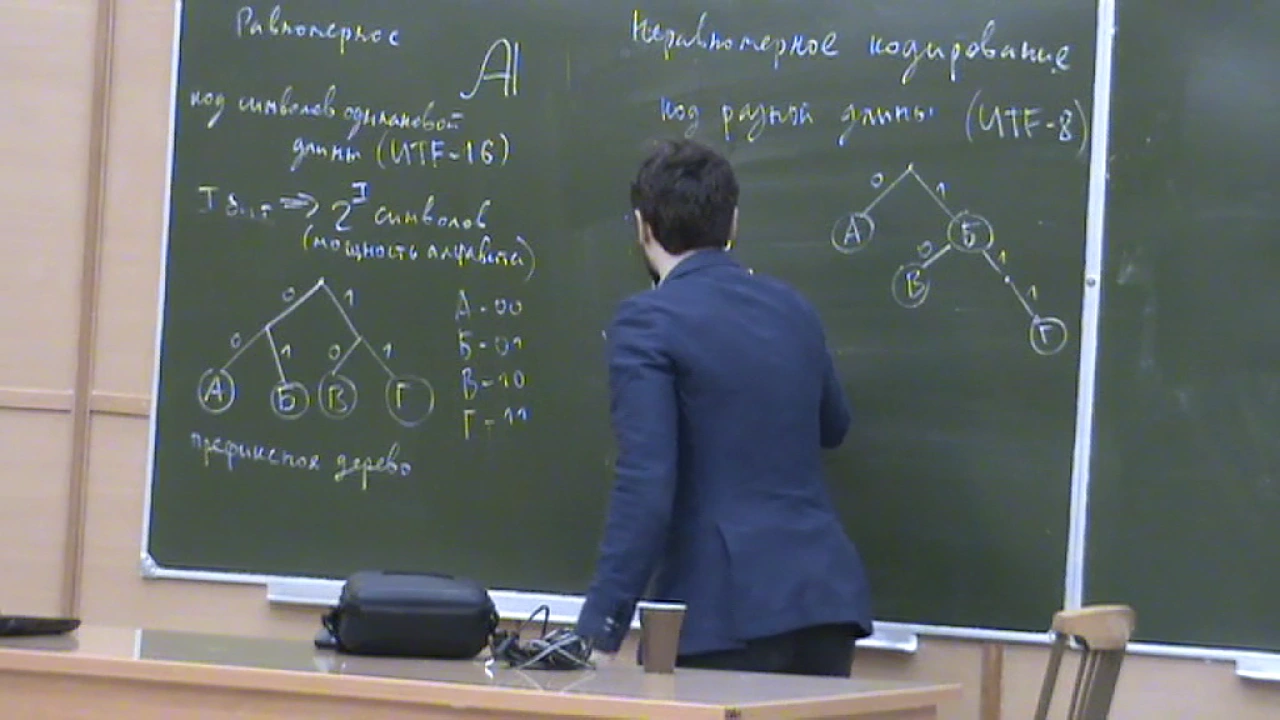 Равномерное
Al
код символов одинаковой
длины (UTF-16)
I бит => 2^I символов
(мощность алфавита)
0 1
0 1 0 1
А Б В Г
А - 00
Б - 01
В - 10
Г - 11
дерево
Неравномерное кодирование
код разной длины (UTF-8)
0 1
А Б
0 1
В 1
Г